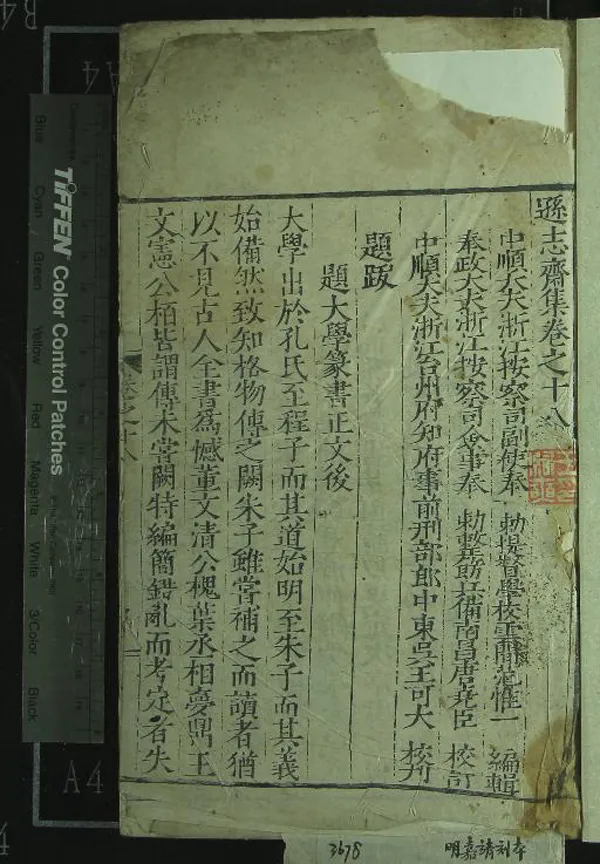 遜志齋集卷之十八
中順大夫浙江按察司副使奉 勑提督學校雲間范惟一 編輯
奉政大夫浙江按察司僉事奉 勑整飭兵備南昌唐堯臣 校訂
中順大夫浙江台州府知府事前刑部郎中東吳王可大 校刊
題跋
題大學篆書正文後
大學出於孔氏至程子而其道始明至朱子而其義
始備然致知格物傳之闕朱子雖嘗補之而讀者猶
以不見古人全書爲憾董文清公槐葉丞相夢鼎王
文憲公栢皆謂傳未嘗闕特編簡錯亂而考定者失
卷之十八
TIFFEN Color Control Patches
Blue
Cyan
Green
Yellow
Red
Magenta
White
3/Color
Black
A4
A4
3678
明嘉靖刻本